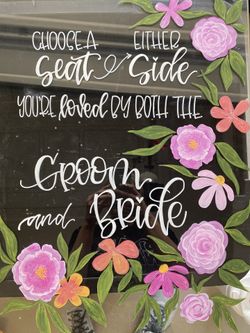 CHOOSE A EITHER
Seat Side
YOU'RE loved BY BOTH THE
GROOM
and BRIDE